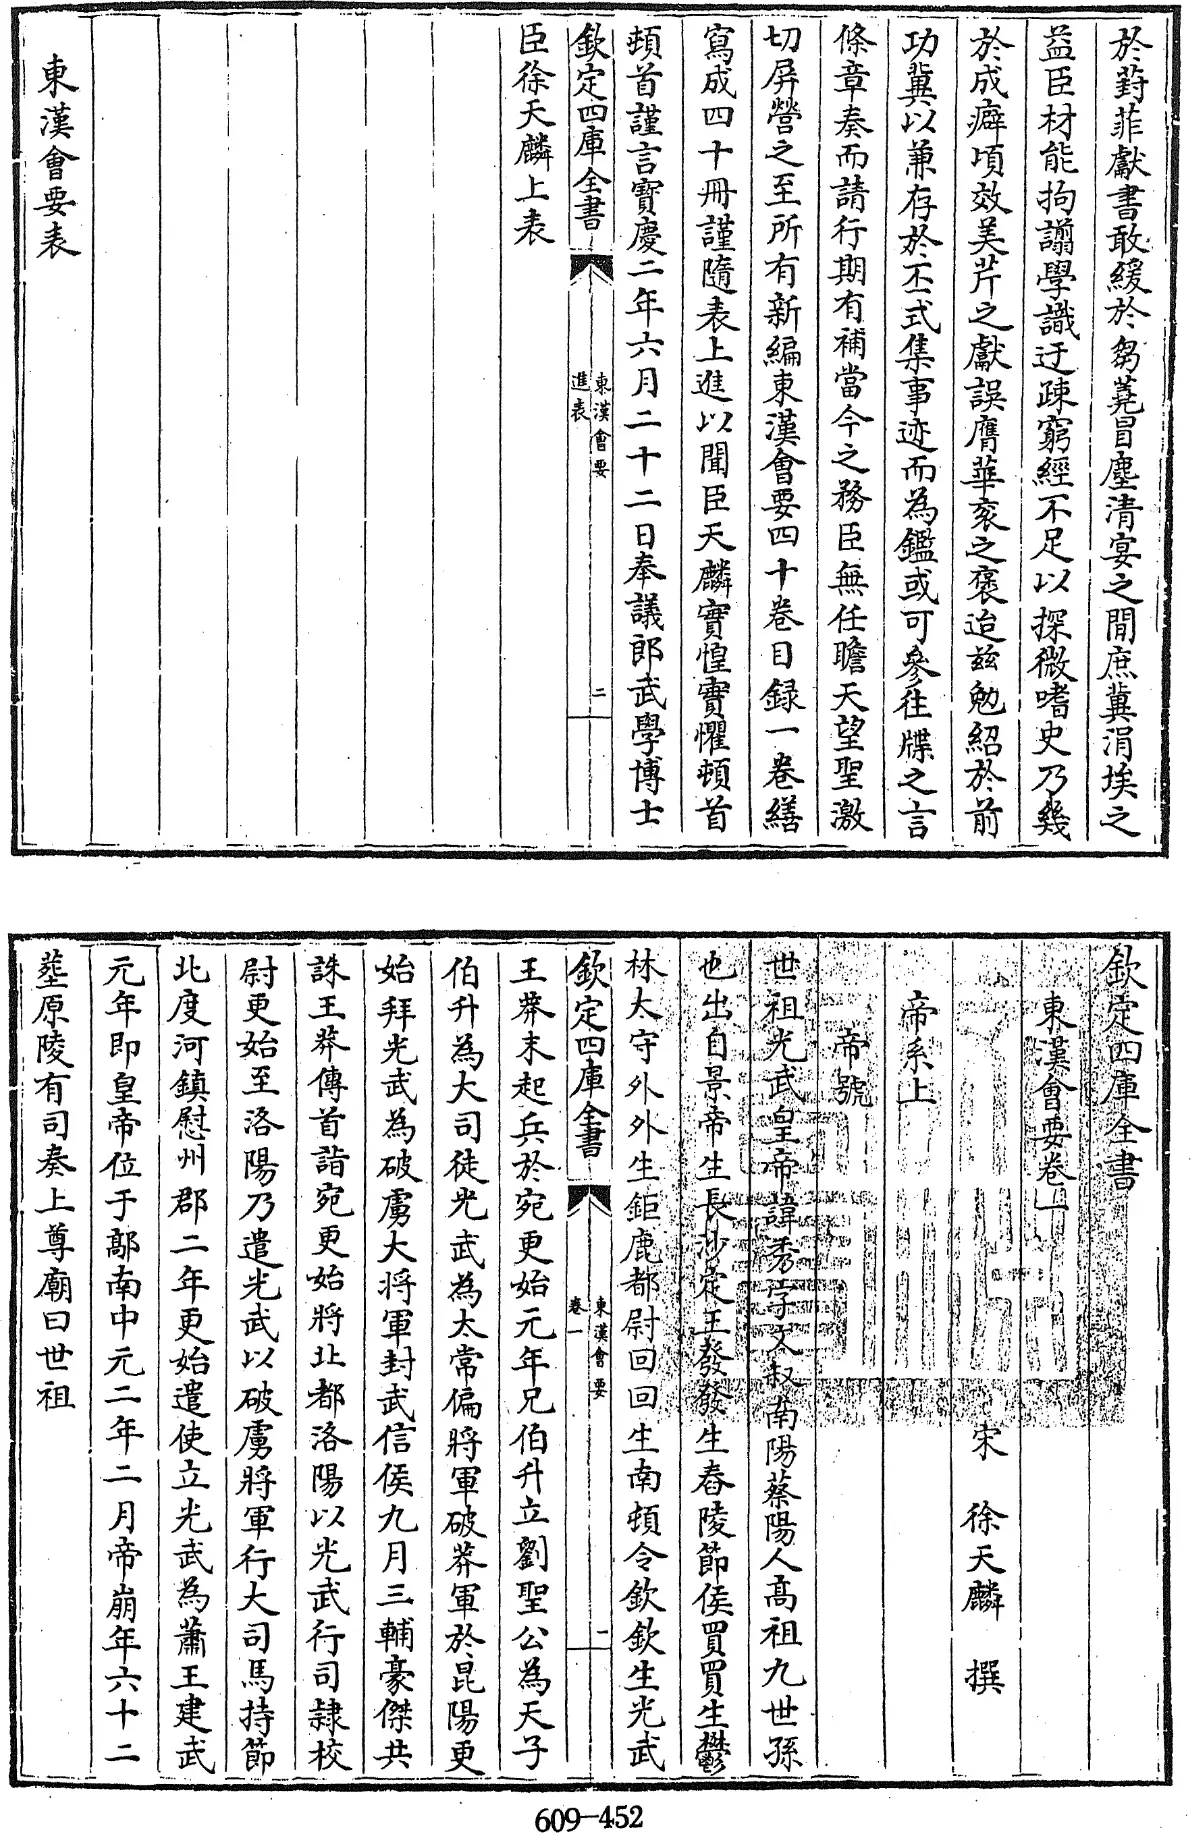 於葑菲獻書敢緩於芻蕘冒塵清宴之閒庶冀涓埃之
益臣材能拘謭學識迂疎窮經不足以探微嗜史乃幾
於成癖頃效美芹之獻誤膺華衮之褒迨兹勉紹於前
功冀以兼存於丕式集事迹而為鑑或可參往牒之言
條章奏而請行期有補當今之務臣無任瞻天望聖激
切屏營之至所有新編東漢會要四十卷目録一卷繕
寫成四十冊謹隨表上進以聞臣天麟實惶實懼頓首
頓首謹言寶慶二年六月二十二日奉議郎武學博士
欽定四庫全書
東漢會要
進表
二
臣徐天麟上表
東漢會要表
欽定四庫全書
東漢會要卷一
宋 徐天麟 撰
帝系上
帝號
世祖光武皇帝諱秀字文叔南陽蔡陽人高祖九世孫
也出自景帝生長沙定王發發生舂陵節侯買買生鬱
林太守外外生鉅鹿都尉回回生南頓令欽欽生光武
欽定四庫全書
東漢會要
卷一
一
王莽末起兵於宛更始元年兄伯升立劉聖公為天子
伯升為大司徒光武為太常偏將軍破莽軍於昆陽更
始拜光武為破虜大將軍封武信侯九月三輔豪傑共
誅王莽傳首詣宛更始將北都洛陽以光武行司隷校
尉更始至洛陽乃遣光武以破虜將軍行大司馬持節
北度河鎮慰州郡二年更始遣使立光武為蕭王建武
元年即皇帝位于鄗南中元二年二月帝崩年六十二
塟原陵有司奏上尊廟曰世祖
609-452